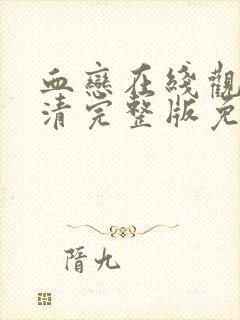 血戀在綫觀
清完整版免
隋九